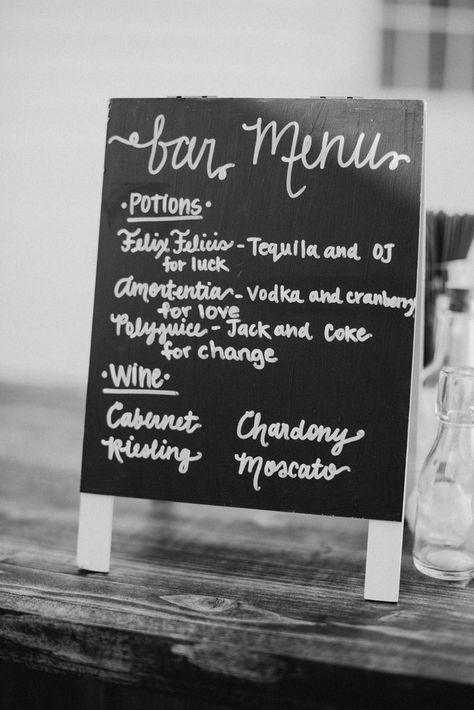 bar Menu
·Potions·
Felix Felicis - Tequila and OJ
for luck
Amortentia - Vodka and cranberry
for love
Polyjuice - Jack and Coke
for change
·Wine·
Cabernet Chardony
Riesling Moscato